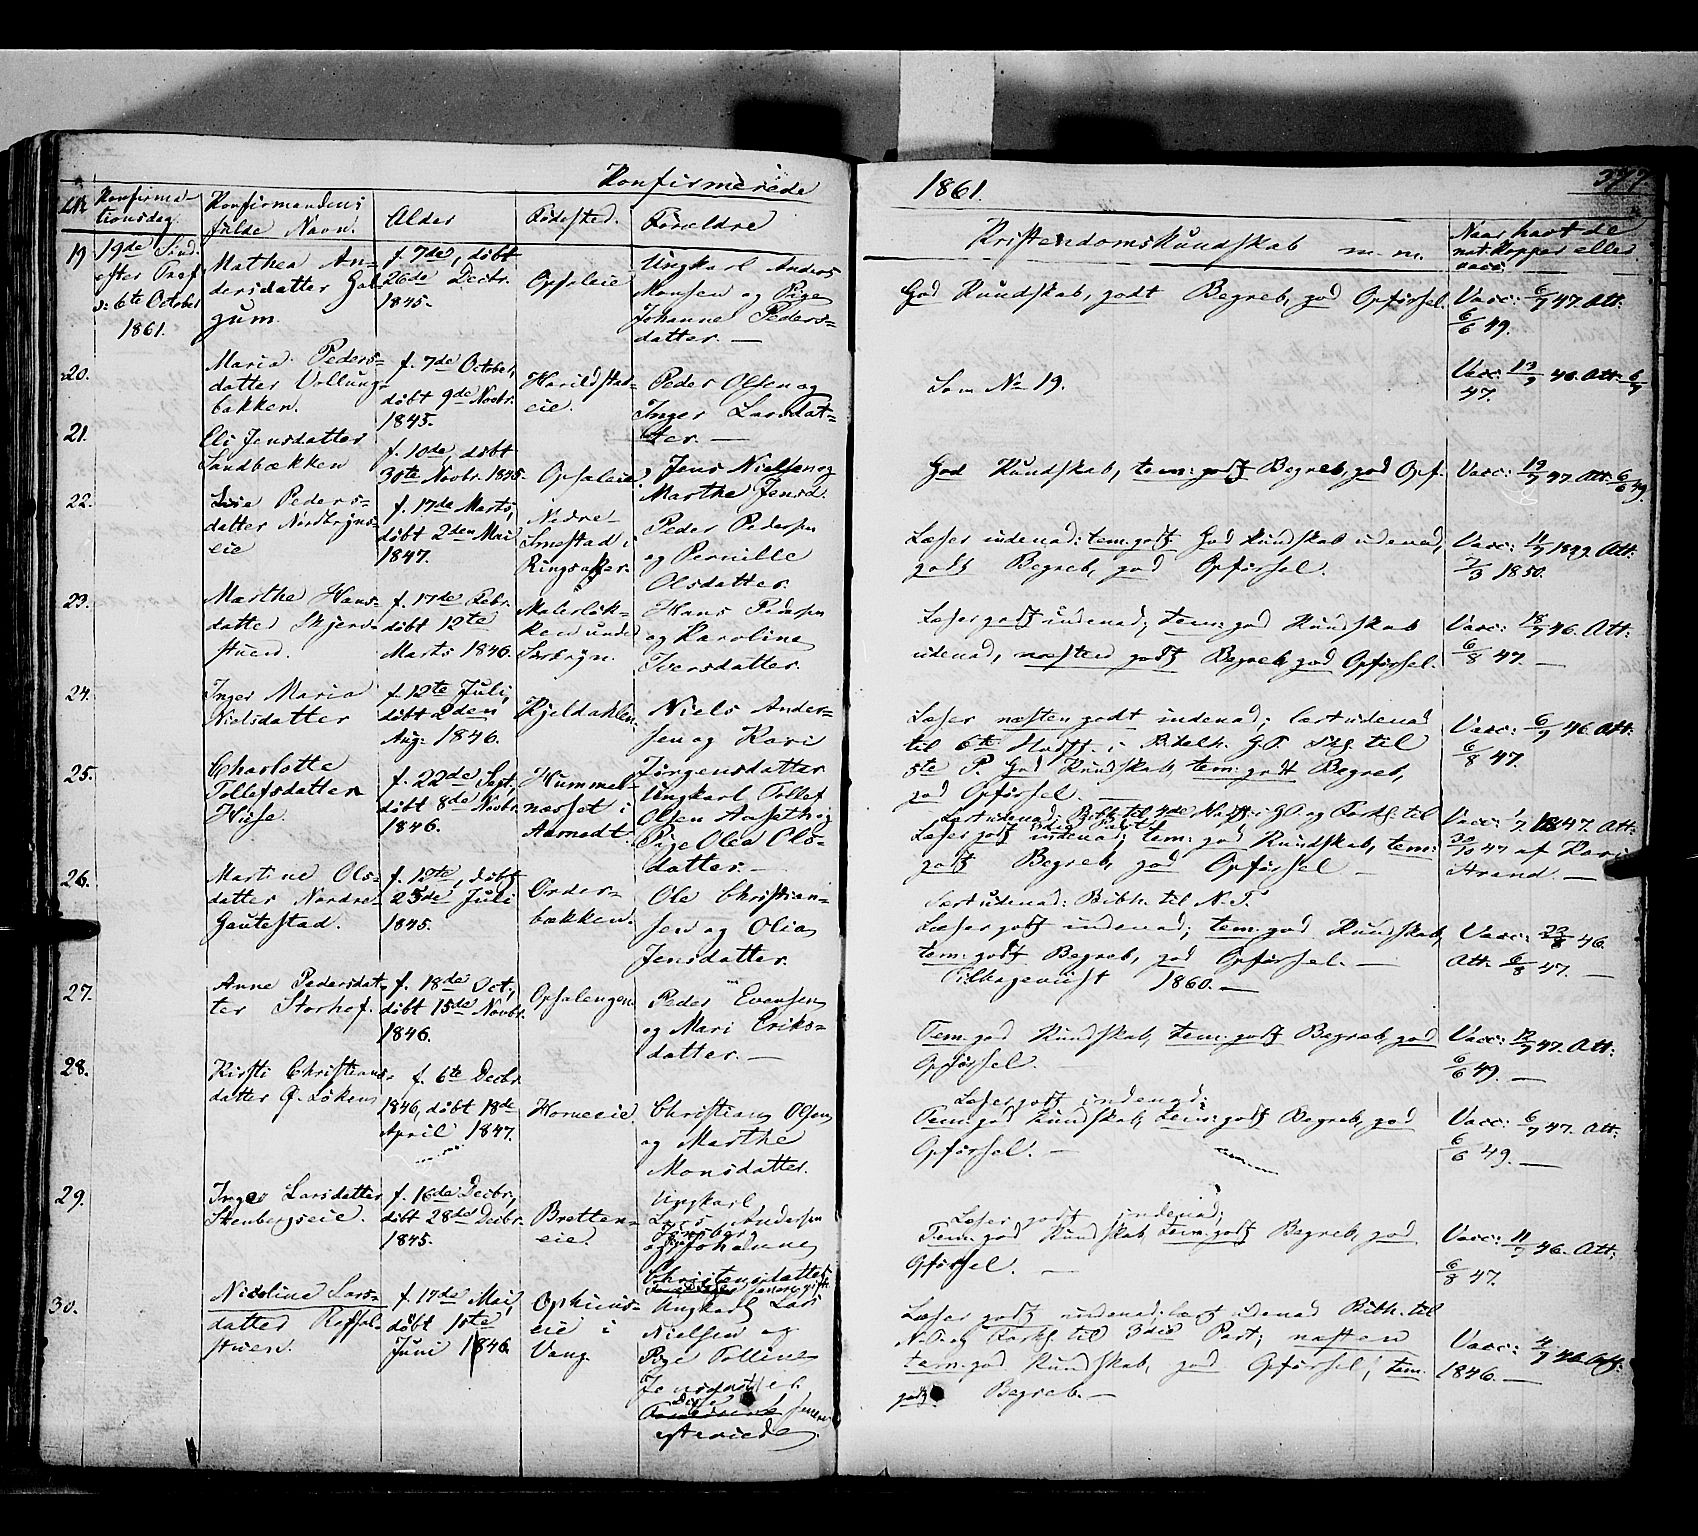 Konfirmerede
1861.
377.
Konfirma-
tionsdag.
Konfirmandens
fulde Navn.
Alder
Fødested.
Forældre
Kristendomskundskab m. m.
Naar havt de
nat. kopper eller
vacc.
19
19de Sønd.
efter Tref.
s: 6te October
1861.
Mathea An-
dersdatter Gal-
gum.
f. 7de, døbt
26de Decbr.
1845.
Opsaleie
Ungkarl Anders
Monsen og Pige
Johanne Peders-
datter. —
God Kundskab, godt Begreb, god Opførsel.
Vacc: 6/7 47. Att:
6/6 49.
20.
Maria Peders-
datter Vollung-
bakken.
f. 7de October,
døbt 9de Novbr.
1845.
Harildstad-
eie.
Peder Olsen og
Inger Larsdat-
ter. —
Som No 19.
Vacc: 46. Att: 6/7
47.
21.
Eli Jensdatter
Sandbækken
f. 10de, døbt
30te Novbr. 1845.
Opsaleie
Jens Nielsen og
Marthe Jensd.
God Kundskab, tem: godt Begreb, god Opf.
Vacc: 19/7 47. Att: 6/6 49.
22.
Lisie Peders-
datter Nordbryns-
eie
f. 17de Marts,
døbt 2den Mai
1847.
Nedre-
Smestad i
Ringsaker.
Peder Pedersen
og Pernille
Olsdatter.
Læser indenad: tem: godt God Kundskab udenad,
godt Begreb, god Opførsel.
Vacc: 1849. Att:
7/3 1850.
23.
Marthe Hans-
datter Skjerv-
stuen.
f. 17de Febr.
døbt 12te
Marts 1846.
Malerløk-
ken under
Sørbryn.
Hans Pedersen
og Karoline
Iversdatter.
Læser godt indenad; tem: god Kundskab
udenad, næsten godt Begreb, god Opførsel.
Vacc: 18/7 46. Att:
6/8 47. —
24.
Inger Maria
Nielsdatter
f. 12te Juli,
døbt 2den
Aug. 1846.
Kjeldahlen.
Niels Ander-
sen og Kari
Jørgensdatter
Læser næsten godt indenad; lært udenad
til 6te i Bibelh. G. T. til
5te P. God Kundskab, tem: godt Begreb,
god Opførsel.
Vacc: 6/7 46. Att:
6/8 47.
25.
Charlotte
Tollefsdatter
Huse.
f. 22de Sept.,
døbt 8de Novbr.
1846.
Hummel-
næsset i
Aamodt.
Ungkarl Tollef
Olsen Aasetvig
Pige Olea Ols-
datter. —
Lært udenad: Bibh. til 4de G.T. og Forkl. til
3die Part.
Læser godt indenad; tem: god Kundskab, tem:
godt Begreb, god Opførsel —
Vacc: 1847. Att:
47 af Kari
Strand. —
26.
Martine Ols-
datter Nordre-
Gautestad.
f. 12te, døbt
25de Juli
1845.
Order-
bækken.
Ole Christian-
sen og Olia
Jensdatter
Lært udenad: Bibh. til N. T.
Læser godt indenad; tem: god Kundskab,
tem: godt Begreb, god Opførsel. —
Tilbageviist 1860. —
Vacc: 23/8 46.
Att: 6/8 47. —
27.
Anne Pedersdat-
ter Storhof.
f. 18de Oct.,
døbt 15de Novbr.
1846.
Opsalengen
Peder Evensen
og Mari Eriks-
datter. —
Tem: god Kundskab, tem: godt Begreb, god
Opførsel. —
Vacc: 12/7 47. Att:
6/6 49. —
28.
Kirsti Christians-
datter G. Løken
f. 6te Decbr.
1846, døbt 18de
April 1847.
Horneeie.
Christian Olsen
og Marthe
Monsdatter.
Læser godt indenad;
Tem: god Kundskab, tem: godt Begreb, god
Opførsel. —
Vacc: 6/7 47. Att:
6/6 49. —
29.
Inger Larsdatter
Stenbergseie.
f. 16de Decbr.,
døbt 28de Decbr.
1845.
Bretten-
eie.
Ungkarl
Lars Andersen
og Johanne
Christensdatter
Læser godt indenad;
Tem: god Kundskab, tem: godt Begreb, god
Opførsel. —
Vacc: 11/7 46. Att:
6/8 47.
30.
Nicoline Lars-
datter
stuen.
f. 17de Mai,
døbt 1ste
Juni 1846
Ophuus-
eie i
Vang.
Ungkarl Lars
Nielsen og
Pige Polline
Jensdatter.
Læser godt indenad; lært udenad Bibh. til
N. T. og Forkl. til 3die Part; næsten
tem: god Kundskab, god Opførsel, tem:
godt Begreb. —
Vacc: 4/7 46 Att:
1846. —